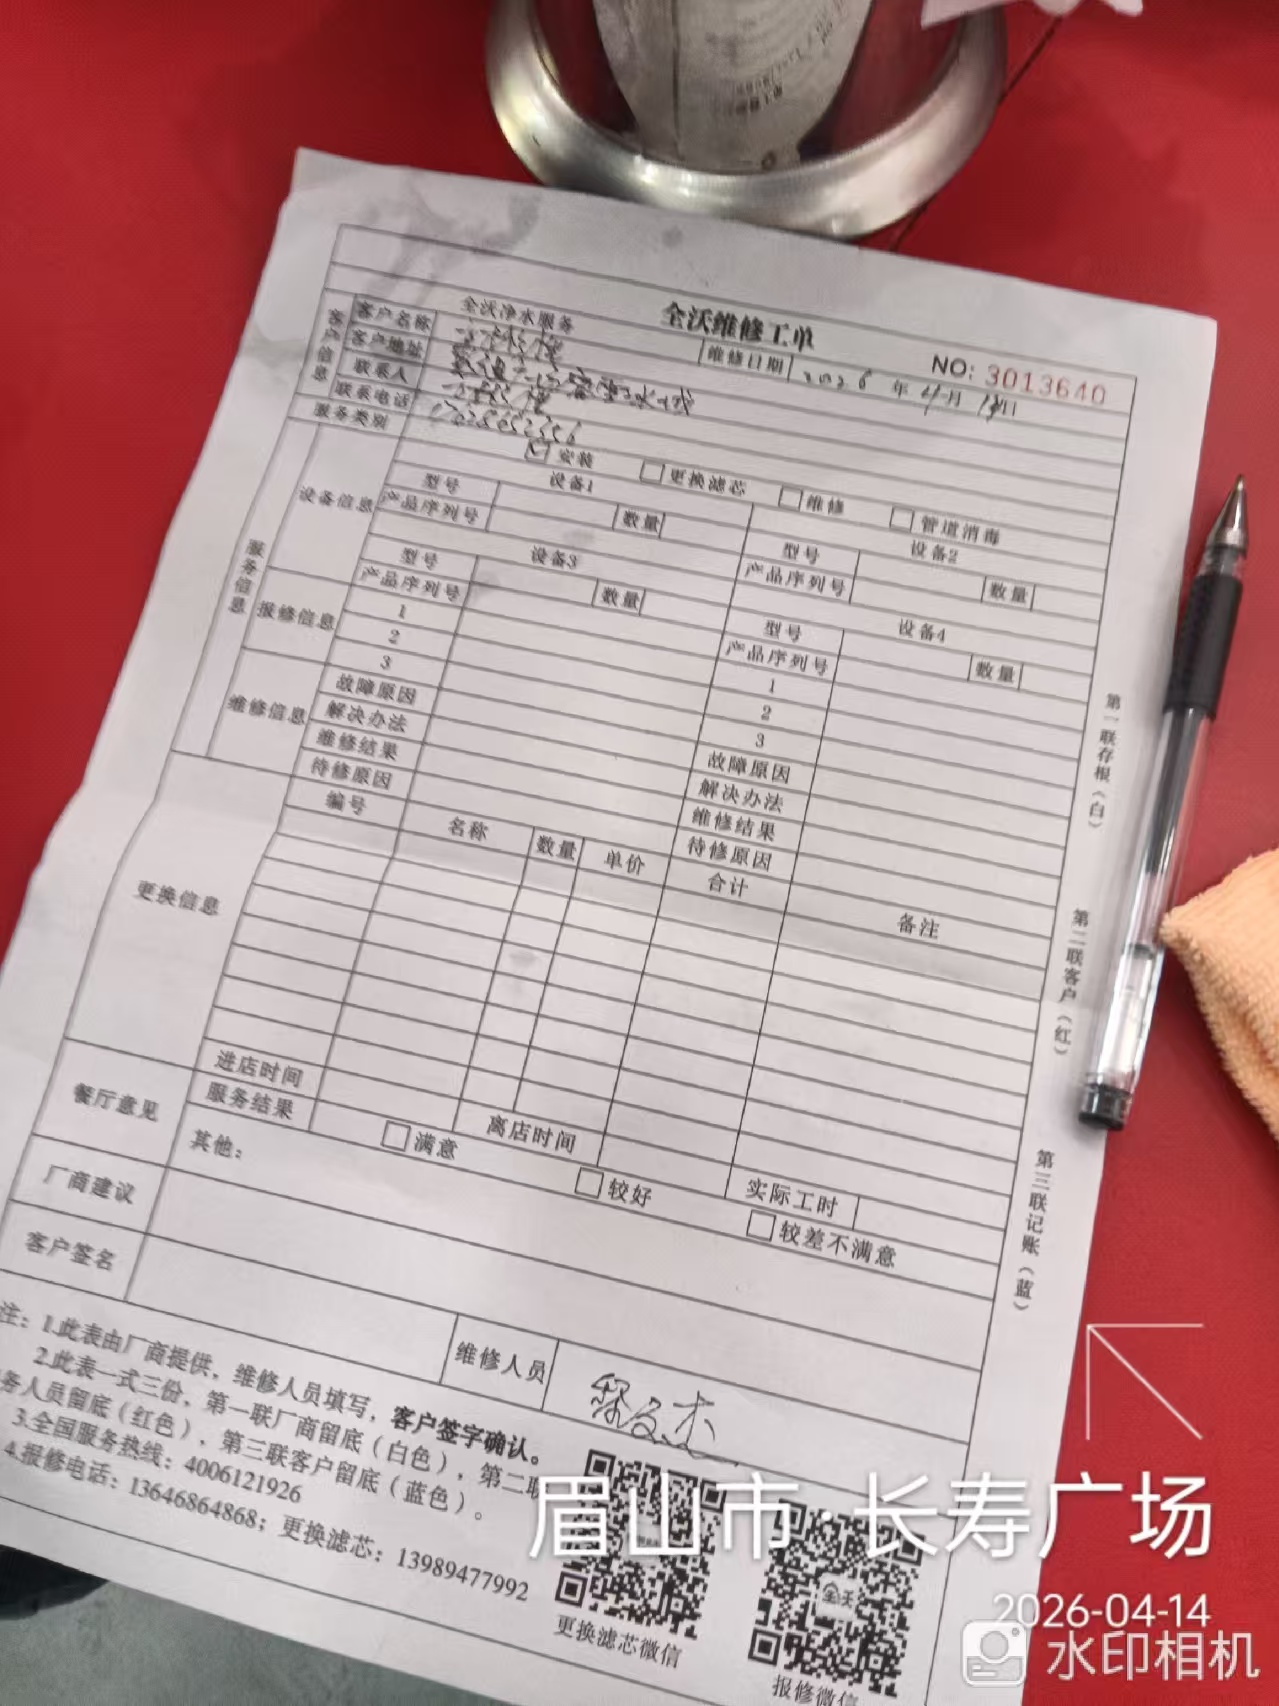 全沃净水服务
全沃维修工单
NO: 3013640
客户信息
客户名称
维修日期 2026 年 4月 日
客户地址
联系人
联系电话
服务类别 安装 更换滤芯 维修 管道消毒
服务信息
设备信息
设备1 设备2
型号 数量 型号 数量
产品序列号 产品序列号
设备3 设备4
型号 数量 型号 数量
产品序列号 产品序列号
报修信息
1 1
2 2
3 3
维修信息
故障原因 故障原因
解决办法 解决办法
维修结果 维修结果
待修原因 待修原因
更换信息
编号 名称 数量 单价 合计 备注
餐厅意见
进店时间 离店时间 实际工时
服务结果 满意 较好 较差不满意
厂商建议 其他：
客户签名 维修人员
注：1.此表由厂商提供，维修人员填写，客户签字确认。
2.此表一式三份，第一联厂商留底（白色），第二联
务人员留底（红色），第三联客户留底（蓝色）。
3.全国服务热线：4006121926
4.报修电话：13646864868；更换滤芯：13989477992
更换滤芯微信
报修微信
第一联存根（白）
第二联客户（红）
第三联记账（蓝）
眉山市·长寿广场
2026-04-14
水印相机